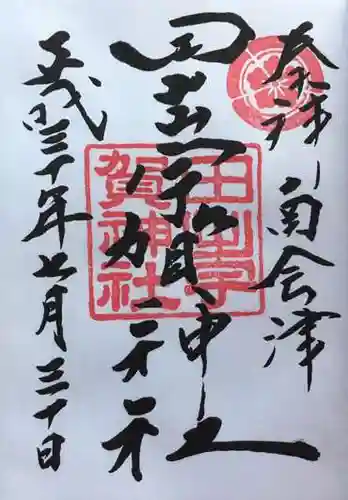 奉拝 南会津
田出宇賀神社
平成三十年七月三十日
田出宇
賀神社